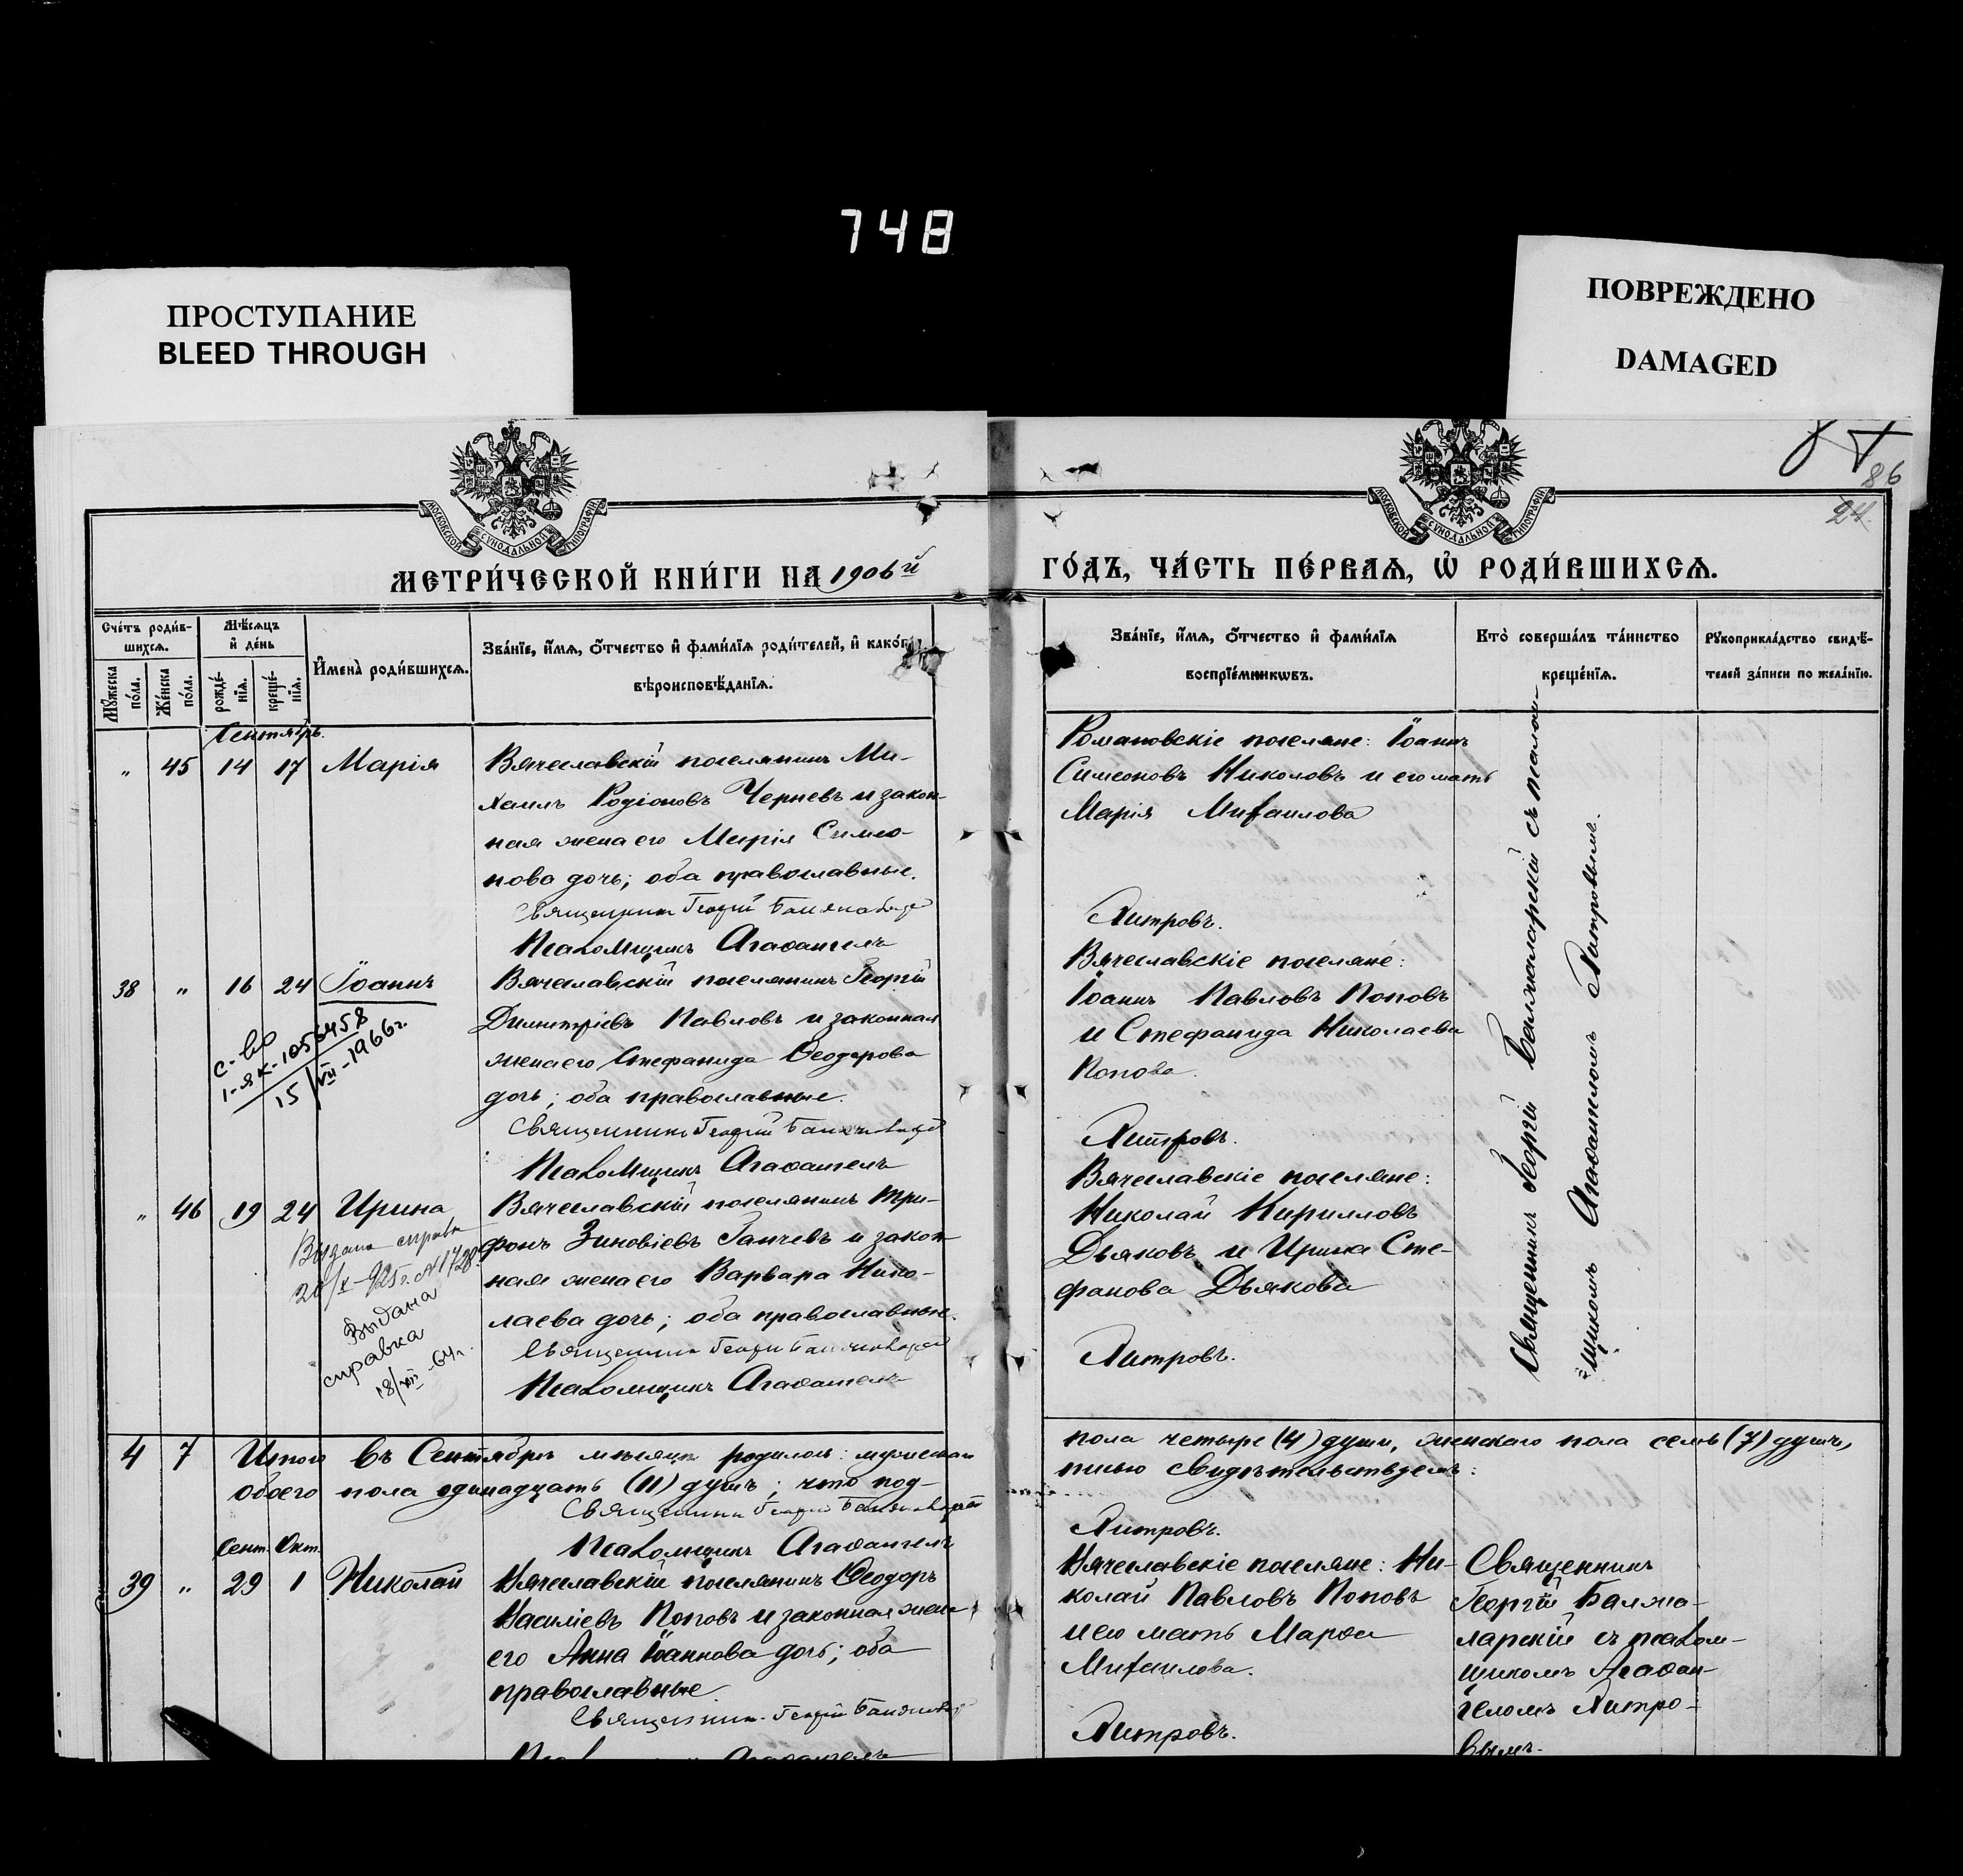 748
ПРОСТУПАНИЕ
BLEED THROUGH
ПОВРЕЖДЕНО
DAMAGED
86
24.
МОСКОВСКОЙ СѴНОДАЛЬНОЙ ТИПОГРАФІИ
МОСКОВСКОЙ СѴНОДАЛЬНОЙ ТИПОГРАФІИ
МЕТРИ́ЧЕСКОЙ КНИ́ГИ НА 1906й
ГО́ДЪ, ЧА́СТЬ ПЕ́РВАЯ, Ѡ РОДИ́ВШИХСЯ.
Сче́тъ роди́в-
шихся.
Мѣ́сяцъ
и де́нь
Мꙋ́жеска по́ла.
Же́нска по́ла.
рожде́-нїя.
креще́-нїя.
Имена̀ роди́вшихся.
Зва́нїе, и́мя, ѻ́тчество и фами́лїя роди́телей, и како́гѡ
вѣроисповѣ́данїя.
Зва́нїе, и́мя, ѻ́тчество и фами́лїя
воспрїе́мникѡвъ.
Кто̀ соверша́лъ та́инство
креще́нїя.
Рꙋкоприкла́дство свидѣ́-
телей за́писи по жела́нїю.
Сентябрь.
" 45 14 17 Марія
Вячеславскій поселянинъ Ми-
хаилъ Родіоновъ Черневъ и закон-
ная жена его Марія Симео-
нова дочь; оба православные.
Священникъ Георгій
Псаломщикъ Агаѳангелъ
Романовскіе поселяне: Іоаннъ
Симеоновъ Николовъ и его мать
Марія Михаилова
Хитровъ.
38 " 16 24 Іоаннъ
с-во
1-ЯК-1056458
15/VII-1966г.
Вячеславскій поселянинъ Георгій
Димитріевъ Павловъ и законная
жена его Стефанида Ѳеодорова
дочь; оба православные.
Священникъ Георгій
Псаломщикъ Агаѳангелъ
Вячеславскіе поселяне:
Іоаннъ Павловъ Поповъ
и Стефанида Николаева
Попова.
Хитровъ.
" 46 19 24 Ирина
Выдана справка
20/X-925г. №1728
Выдана
справка
18/VII-64г.
Вячеславскій поселянинъ Три-
фонъ Зиновіевъ Ганчевъ и закон-
ная жена его Варвара Нико-
лаева дочь; оба православные.
Священникъ Георгій
Псаломщикъ Агаѳангелъ
Вячеславскіе поселяне:
Николай Кирилловъ
Дьяковъ и Ирина Сте-
фанова Дьякова
Хитровъ.
Священникъ Георгій Балжаларскій съ псалом-
щикомъ Агаѳангеломъ Хитровымъ.
4 7 Итого въ Сентябрѣ мѣсяцѣ родилось: мужескаго
пола четыре (4) души, женскаго пола семь (7) душъ,
обоего пола одинадцать (11) душъ; что под-
писью свидѣтельствуемъ:
Священникъ Георгій
Псаломщикъ Агаѳангелъ
Хитровъ.
Сент. Окт.
39 " 29 1 Николай
Вячеславскій поселянинъ Ѳеодоръ
Василіевъ Поповъ и законная жена
его Анна Іоаннова дочь; оба
православные.
Священникъ Георгій
Псаломщикъ Агаѳангелъ
Вячеславскіе поселяне: Ни-
колай Павловъ Поповъ
и его мать Марѳа
Михаилова.
Хитровъ.
Священникъ
Георгій Балжа-
ларскій съ псалом-
щикомъ Агаѳан-
геломъ Хитро-
вымъ.